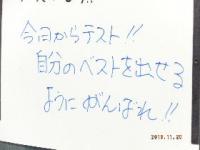 今日からテスト!!
自分のベストを出せる
ようにがんばれ!!
2019.11.20